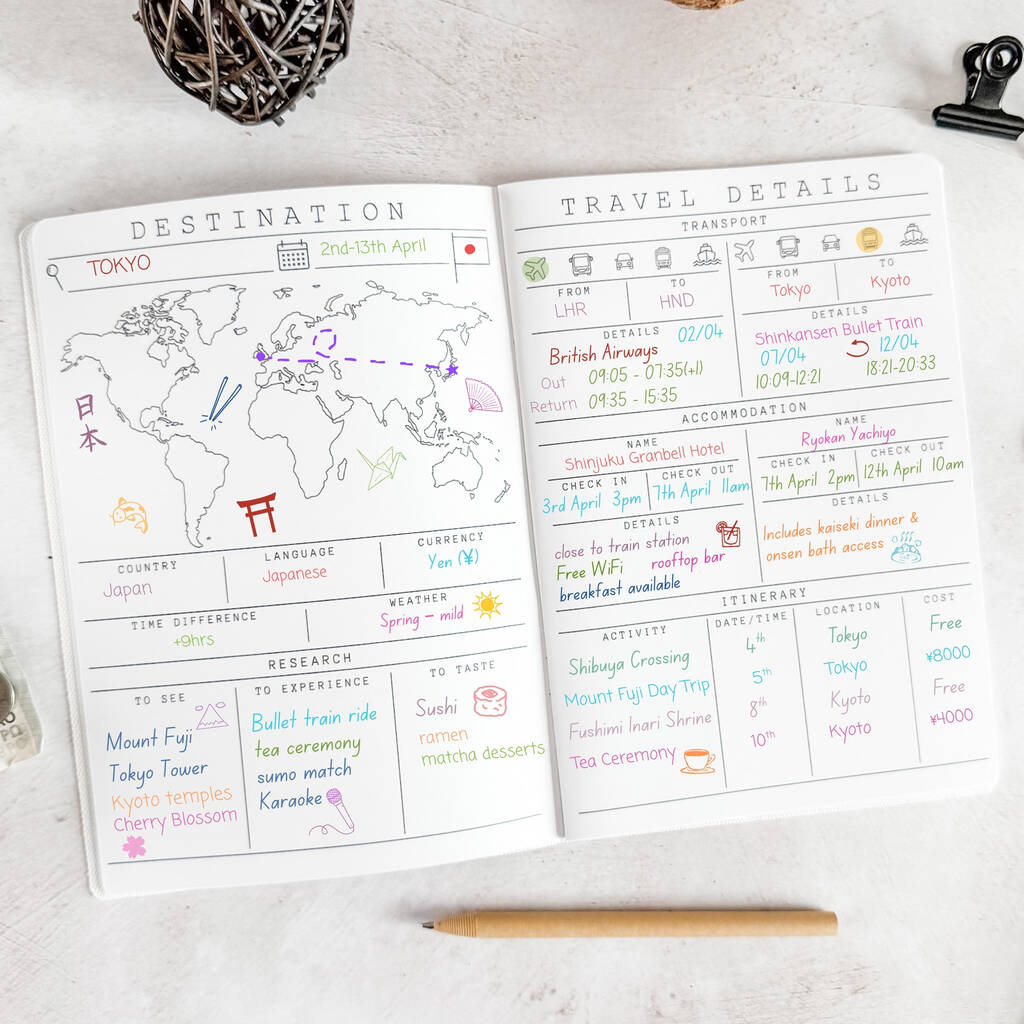 DESTINATION
TOKYO
2nd-13th April
日本
COUNTRY
Japan
LANGUAGE
Japanese
CURRENCY
Yen (¥)
TIME DIFFERENCE
+9hrs
WEATHER
Spring – mild
RESEARCH
TO SEE
Mount Fuji
Tokyo Tower
Kyoto temples
Cherry Blossom
TO EXPERIENCE
Bullet train ride
tea ceremony
sumo match
Karaoke
TO TASTE
Sushi
ramen
matcha desserts
TRAVEL DETAILS
TRANSPORT
FROM
LHR
TO
HND
DETAILS
02/04
British Airways
Out 09:05 - 07:35(+1)
Return 09:35 - 15:35
FROM
Tokyo
TO
Kyoto
DETAILS
Shinkansen Bullet Train
07/04 12/04
10:09-12:21 18:21-20:33
ACCOMMODATION
NAME
Shinjuku Granbell Hotel
CHECK IN
3rd April 3pm
CHECK OUT
7th April 11am
DETAILS
close to train station
Free WiFi rooftop bar
breakfast available
NAME
Ryokan Yachiyo
CHECK IN
7th April 2pm
CHECK OUT
12th April 10am
DETAILS
Includes kaiseki dinner &
onsen bath access
ITINERARY
ACTIVITY DATE/TIME LOCATION COST
Shibuya Crossing 4th Tokyo Free
Mount Fuji Day Trip 5th Tokyo ¥8000
Fushimi Inari Shrine 8th Kyoto Free
Tea Ceremony 10th Kyoto ¥4000